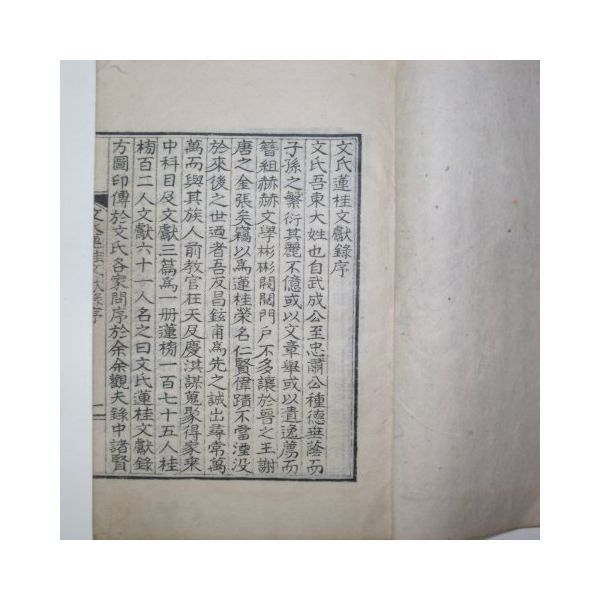 文氏蓮桂文獻錄序
文氏吾東大姓也自武成公至忠肅公種德垂蔭而
子孫之繁衍其麗不億或以文章舉或以遺逸薦而
簪組赫赫文學彬彬閥閱門戶不多讓於晉之王謝
唐之金張矣竊以爲蓮桂榮名仁賢偉蹟不當湮没
於來後之世迺者吾友昌鉉甫爲先之誠出尋常萬
萬而與其族人前教官在天及慶淇謀蒐聚得家來
中科目及文獻三篇爲一册蓮榜一百七十五人桂
榜百二人文獻六十一人名之曰文氏蓮桂文獻錄
方圖印傳於文氏各家問序於余余觀夫錄中諸賢
文氏蓮桂文獻錄序
一